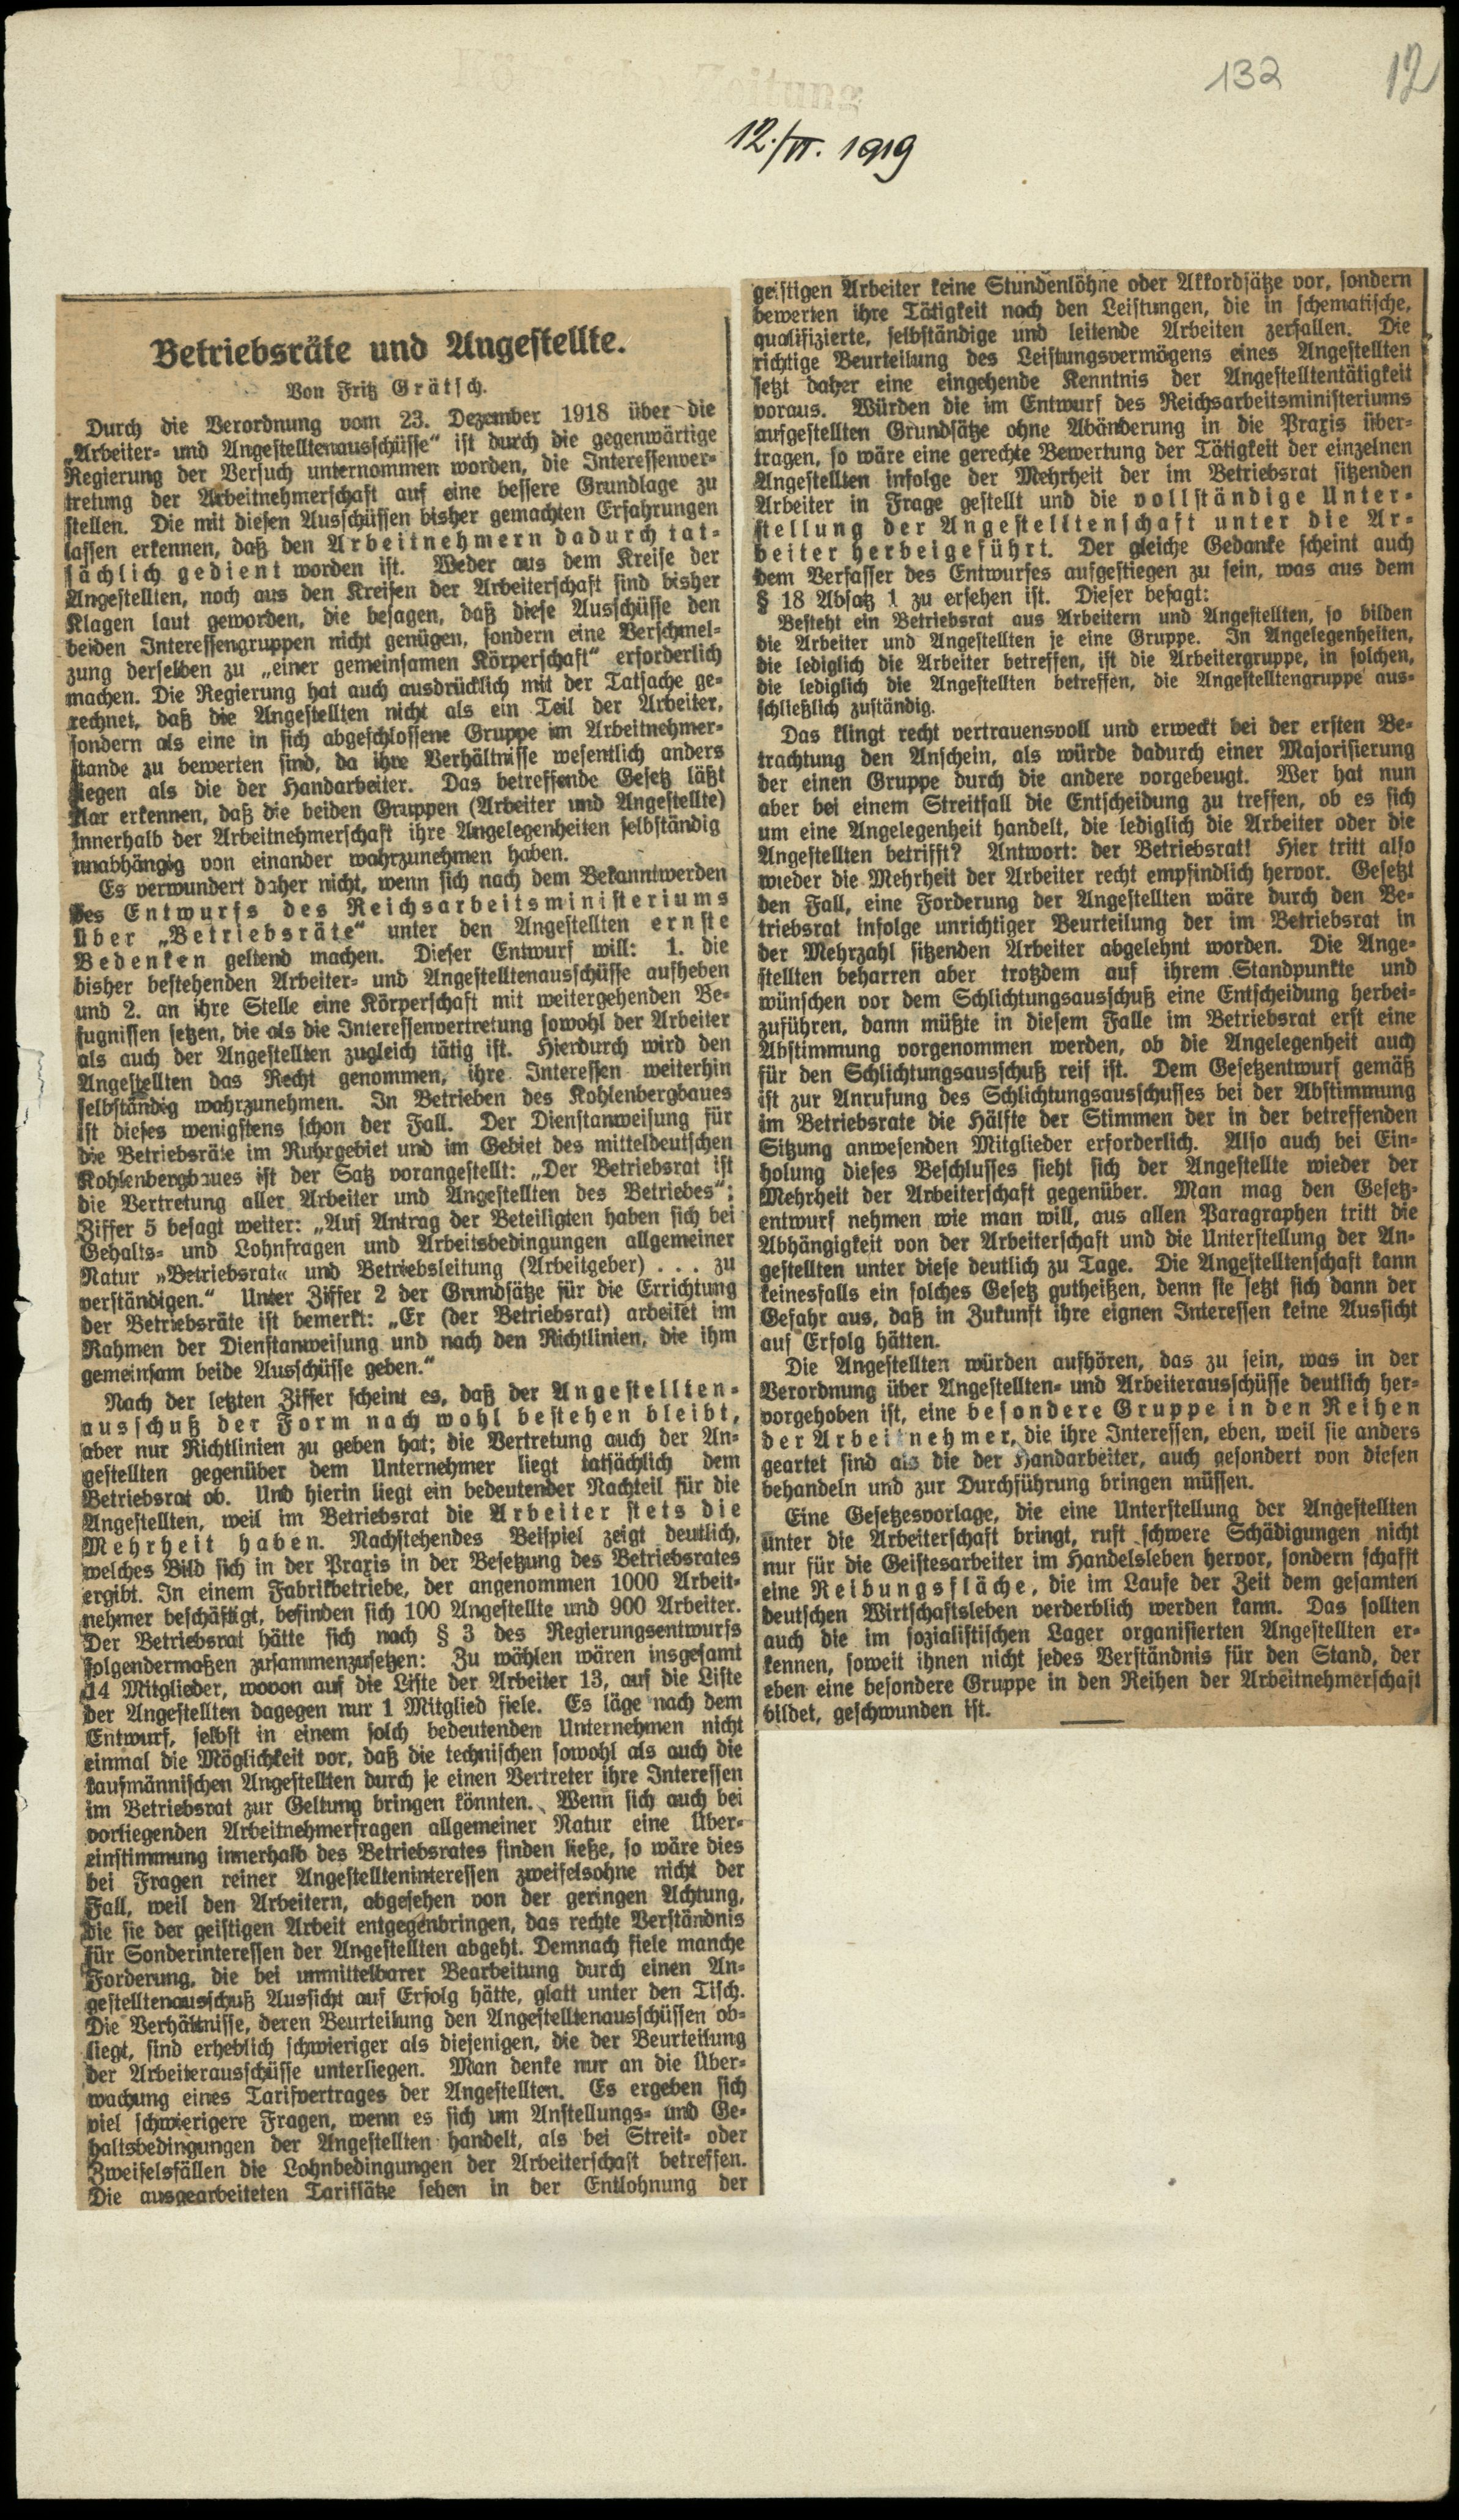 132
12
Zeitung
12./VI. 1919
Betriebsräte und Angestellte.
Von Fritz Grätsch.
Durch die Verordnung vom 23. Dezember 1918 über die
„Arbeiter- und Angestelltenausschüsse“ ist durch die gegenwärtige
Regierung der Versuch unternommen worden, die Interessenver-
tretung der Arbeitnehmerschaft auf eine bessere Grundlage zu
stellen. Die mit diesen Ausschüssen bisher gemachten Erfahrungen
lassen erkennen, daß den Arbeitnehmern dadurch tat-
sächlich gedient worden ist. Weder aus dem Kreise der
Angestellten, noch aus den Kreisen der Arbeiterschaft sind bisher
Klagen laut geworden, die besagen, daß diese Ausschüsse den
beiden Interessengruppen nicht genügen, sondern eine Verschmel-
zung derselben zu „einer gemeinsamen Körperschaft“ erforderlich
machen. Die Regierung hat auch ausdrücklich mit der Tatsache ge-
rechnet, daß die Angestellten nicht als ein Teil der Arbeiter,
sondern als eine in sich abgeschlossene Gruppe im Arbeitnehmer-
stande zu bewerten sind, da ihre Verhältnisse wesentlich anders
liegen als die der Handarbeiter. Das betreffende Gesetz läßt
klar erkennen, daß die beiden Gruppen (Arbeiter und Angestellte)
innerhalb der Arbeitnehmerschaft ihre Angelegenheiten selbständig
unabhängig von einander wahrzunehmen haben.
Es verwundert daher nicht, wenn sich nach dem Bekanntwerden
des Entwurfs des Reichsarbeitsministeriums
über „Betriebsräte“ unter den Angestellten ernste
Bedenken geltend machen. Dieser Entwurf will: 1. die
bisher bestehenden Arbeiter- und Angestelltenausschüsse aufheben
und 2. an ihre Stelle eine Körperschaft mit weitergehenden Be-
fugnissen setzen, die als die Interessenvertretung sowohl der Arbeiter
als auch der Angestellten zugleich tätig ist. Hierdurch wird den
Angestellten das Recht genommen, ihre Interessen weiterhin
selbständig wahrzunehmen. In Betrieben des Kohlenbergbaues
ist dieses wenigstens schon der Fall. Der Dienstanweisung für
die Betriebsräte im Ruhrgebiet und im Gebiet des mitteldeutschen
Kohlenbergbaues ist der Satz vorangestellt: „Der Betriebsrat ist
die Vertretung aller Arbeiter und Angestellten des Betriebes“;
Ziffer 5 besagt weiter: „Auf Antrag der Beteiligten haben sich bei
Gehalts- und Lohnfragen und Arbeitsbedingungen allgemeiner
Natur »Betriebsrat« und Betriebsleitung (Arbeitgeber) . . . zu
verständigen.“ Unter Ziffer 2 der Grundsätze für die Errichtung
der Betriebsräte ist bemerkt: „Er (der Betriebsrat) arbeitet im
Rahmen der Dienstanweisung und nach den Richtlinien, die ihm
gemeinsam beide Ausschüsse geben.“
Nach der letzten Ziffer scheint es, daß der Angestellten-
ausschuß der Form nach wohl bestehen bleibt,
aber nur Richtlinien zu geben hat; die Vertretung auch der An-
gestellten gegenüber dem Unternehmer liegt tatsächlich dem
Betriebsrat ob. Und hierin liegt ein bedeutender Nachteil für die
Angestellten, weil im Betriebsrat die Arbeiter stets die
Mehrheit haben. Nachstehendes Beispiel zeigt deutlich,
welches Bild sich in der Praxis in der Besetzung des Betriebsrates
ergibt. In einem Fabrikbetriebe, der angenommen 1000 Arbeit-
nehmer beschäftigt, befinden sich 100 Angestellte und 900 Arbeiter.
Der Betriebsrat hätte sich nach § 3 des Regierungsentwurfs
folgendermaßen zusammenzusetzen: Zu wählen wären insgesamt
14 Mitglieder, wovon auf die Liste der Arbeiter 13, auf die Liste
der Angestellten dagegen nur 1 Mitglied fiele. Es läge nach dem
Entwurf, selbst in einem solch bedeutenden Unternehmen nicht
einmal die Möglichkeit vor, daß die technischen sowohl als auch die
kaufmännischen Angestellten durch je einen Vertreter ihre Interessen
im Betriebsrat zur Geltung bringen könnten. Wenn sich auch bei
vorliegenden Arbeitnehmerfragen allgemeiner Natur eine Über-
einstimmung innerhalb des Betriebsrates finden ließe, so wäre dies
bei Fragen reiner Angestellteninteressen zweifelsohne nicht der
Fall, weil den Arbeitern, abgesehen von der geringen Achtung,
die sie der geistigen Arbeit entgegenbringen, das rechte Verständnis
für Sonderinteressen der Angestellten abgeht. Demnach fiele manche
Forderung, die bei unmittelbarer Bearbeitung durch einen An-
gestelltenausschuß Aussicht auf Erfolg hätte, glatt unter den Tisch.
Die Verhältnisse, deren Beurteilung den Angestelltenausschüssen ob-
liegt, sind erheblich schwieriger als diejenigen, die der Beurteilung
der Arbeiterausschüsse unterliegen. Man denke nur an die Über-
wachung eines Tarifvertrages der Angestellten. Es ergeben sich
viel schwierigere Fragen, wenn es sich um Anstellungs- und Ge-
haltsbedingungen der Angestellten handelt, als bei Streit- oder
Zweifelsfällen die Lohnbedingungen der Arbeiterschaft betreffen.
Die ausgearbeiteten Tarifsätze sehen in der Entlohnung der
geistigen Arbeiter keine Stundenlöhne oder Akkordsätze vor, sondern
bewerten ihre Tätigkeit nach den Leistungen, die in schematische,
qualifizierte, selbständige und leitende Arbeiten zerfallen. Die
richtige Beurteilung des Leistungsvermögens eines Angestellten
setzt daher eine eingehende Kenntnis der Angestelltentätigkeit
voraus. Würden die im Entwurf des Reichsarbeitsministeriums
aufgestellten Grundsätze ohne Abänderung in die Praxis über-
tragen, so wäre eine gerechte Bewertung der Tätigkeit der einzelnen
Angestellten infolge der Mehrheit der im Betriebsrat sitzenden
Arbeiter in Frage gestellt und die vollständige Unter-
stellung der Angestelltenschaft unter die Ar-
beiter herbeigeführt. Der gleiche Gedanke scheint auch
dem Verfasser des Entwurfes aufgestiegen zu sein, was aus dem
§ 18 Absatz 1 zu ersehen ist. Dieser besagt:
Besteht ein Betriebsrat aus Arbeitern und Angestellten, so bilden
die Arbeiter und Angestellten je eine Gruppe. In Angelegenheiten,
die lediglich die Arbeiter betreffen, ist die Arbeitergruppe, in solchen,
die lediglich die Angestellten betreffen, die Angestelltengruppe aus-
schließlich zuständig.
Das klingt recht vertrauensvoll und erweckt bei der ersten Be-
trachtung den Anschein, als würde dadurch einer Majorisierung
der einen Gruppe durch die andere vorgebeugt. Wer hat nun
aber bei einem Streitfall die Entscheidung zu treffen, ob es sich
um eine Angelegenheit handelt, die lediglich die Arbeiter oder die
Angestellten betrifft? Antwort: der Betriebsrat! Hier tritt also
wieder die Mehrheit der Arbeiter recht empfindlich hervor. Gesetzt
den Fall, eine Forderung der Angestellten wäre durch den Be-
triebsrat infolge unrichtiger Beurteilung der im Betriebsrat in
der Mehrzahl sitzenden Arbeiter abgelehnt worden. Die Ange-
stellten beharren aber trotzdem auf ihrem Standpunkte und
wünschen vor dem Schlichtungsausschuß eine Entscheidung herbei-
zuführen, dann müßte in diesem Falle im Betriebsrat erst eine
Abstimmung vorgenommen werden, ob die Angelegenheit auch
für den Schlichtungsausschuß reif ist. Dem Gesetzentwurf gemäß
ist zur Anrufung des Schlichtungsausschusses bei der Abstimmung
im Betriebsrate die Hälfte der Stimmen der in der betreffenden
Sitzung anwesenden Mitglieder erforderlich. Also auch bei Ein-
holung dieses Beschlusses sieht sich der Angestellte wieder der
Mehrheit der Arbeiterschaft gegenüber. Man mag den Gesetz-
entwurf nehmen wie man will, aus allen Paragraphen tritt die
Abhängigkeit von der Arbeiterschaft und die Unterstellung der An-
gestellten unter diese deutlich zu Tage. Die Angestelltenschaft kann
keinesfalls ein solches Gesetz gutheißen, denn sie setzt sich dann der
Gefahr aus, daß in Zukunft ihre eignen Interessen keine Aussicht
auf Erfolg hätten.
Die Angestellten würden aufhören, das zu sein, was in der
Verordnung über Angestellten- und Arbeiterausschüsse deutlich her-
vorgehoben ist, eine besondere Gruppe in den Reihen
der Arbeitnehmer, die ihre Interessen, eben, weil sie anders
geartet sind als die der Handarbeiter, auch gesondert von diesen
behandeln und zur Durchführung bringen müssen.
Eine Gesetzesvorlage, die eine Unterstellung der Angestellten
unter die Arbeiterschaft bringt, ruft schwere Schädigungen nicht
nur für die Geistesarbeiter im Handelsleben hervor, sondern schafft
eine Reibungsfläche, die im Laufe der Zeit dem gesamten
deutschen Wirtschaftsleben verderblich werden kann. Das sollten
auch die im sozialistischen Lager organisierten Angestellten er-
kennen, soweit ihnen nicht jedes Verständnis für den Stand, der
eben eine besondere Gruppe in den Reihen der Arbeitnehmerschaft
bildet, geschwunden ist.